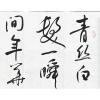 青丝白
髮一瞬
间年華